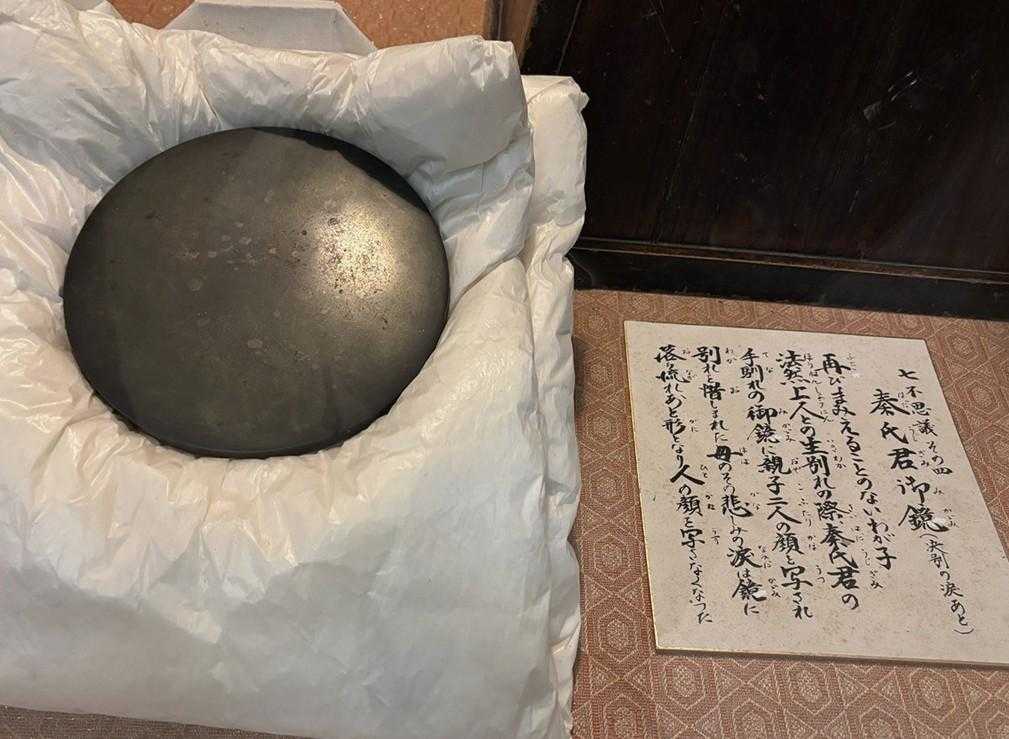 七不思議 その四
秦氏君御鏡(決別の涙あと)
再びまみえることのないわが子
法然上人との生別れの際秦氏君の
手別れの御鏡に親子二人の顔を写され
別れを惜しまれた母のその悲しみの涙は鏡に
流れ、あと形となり人の顔を写さなくなった